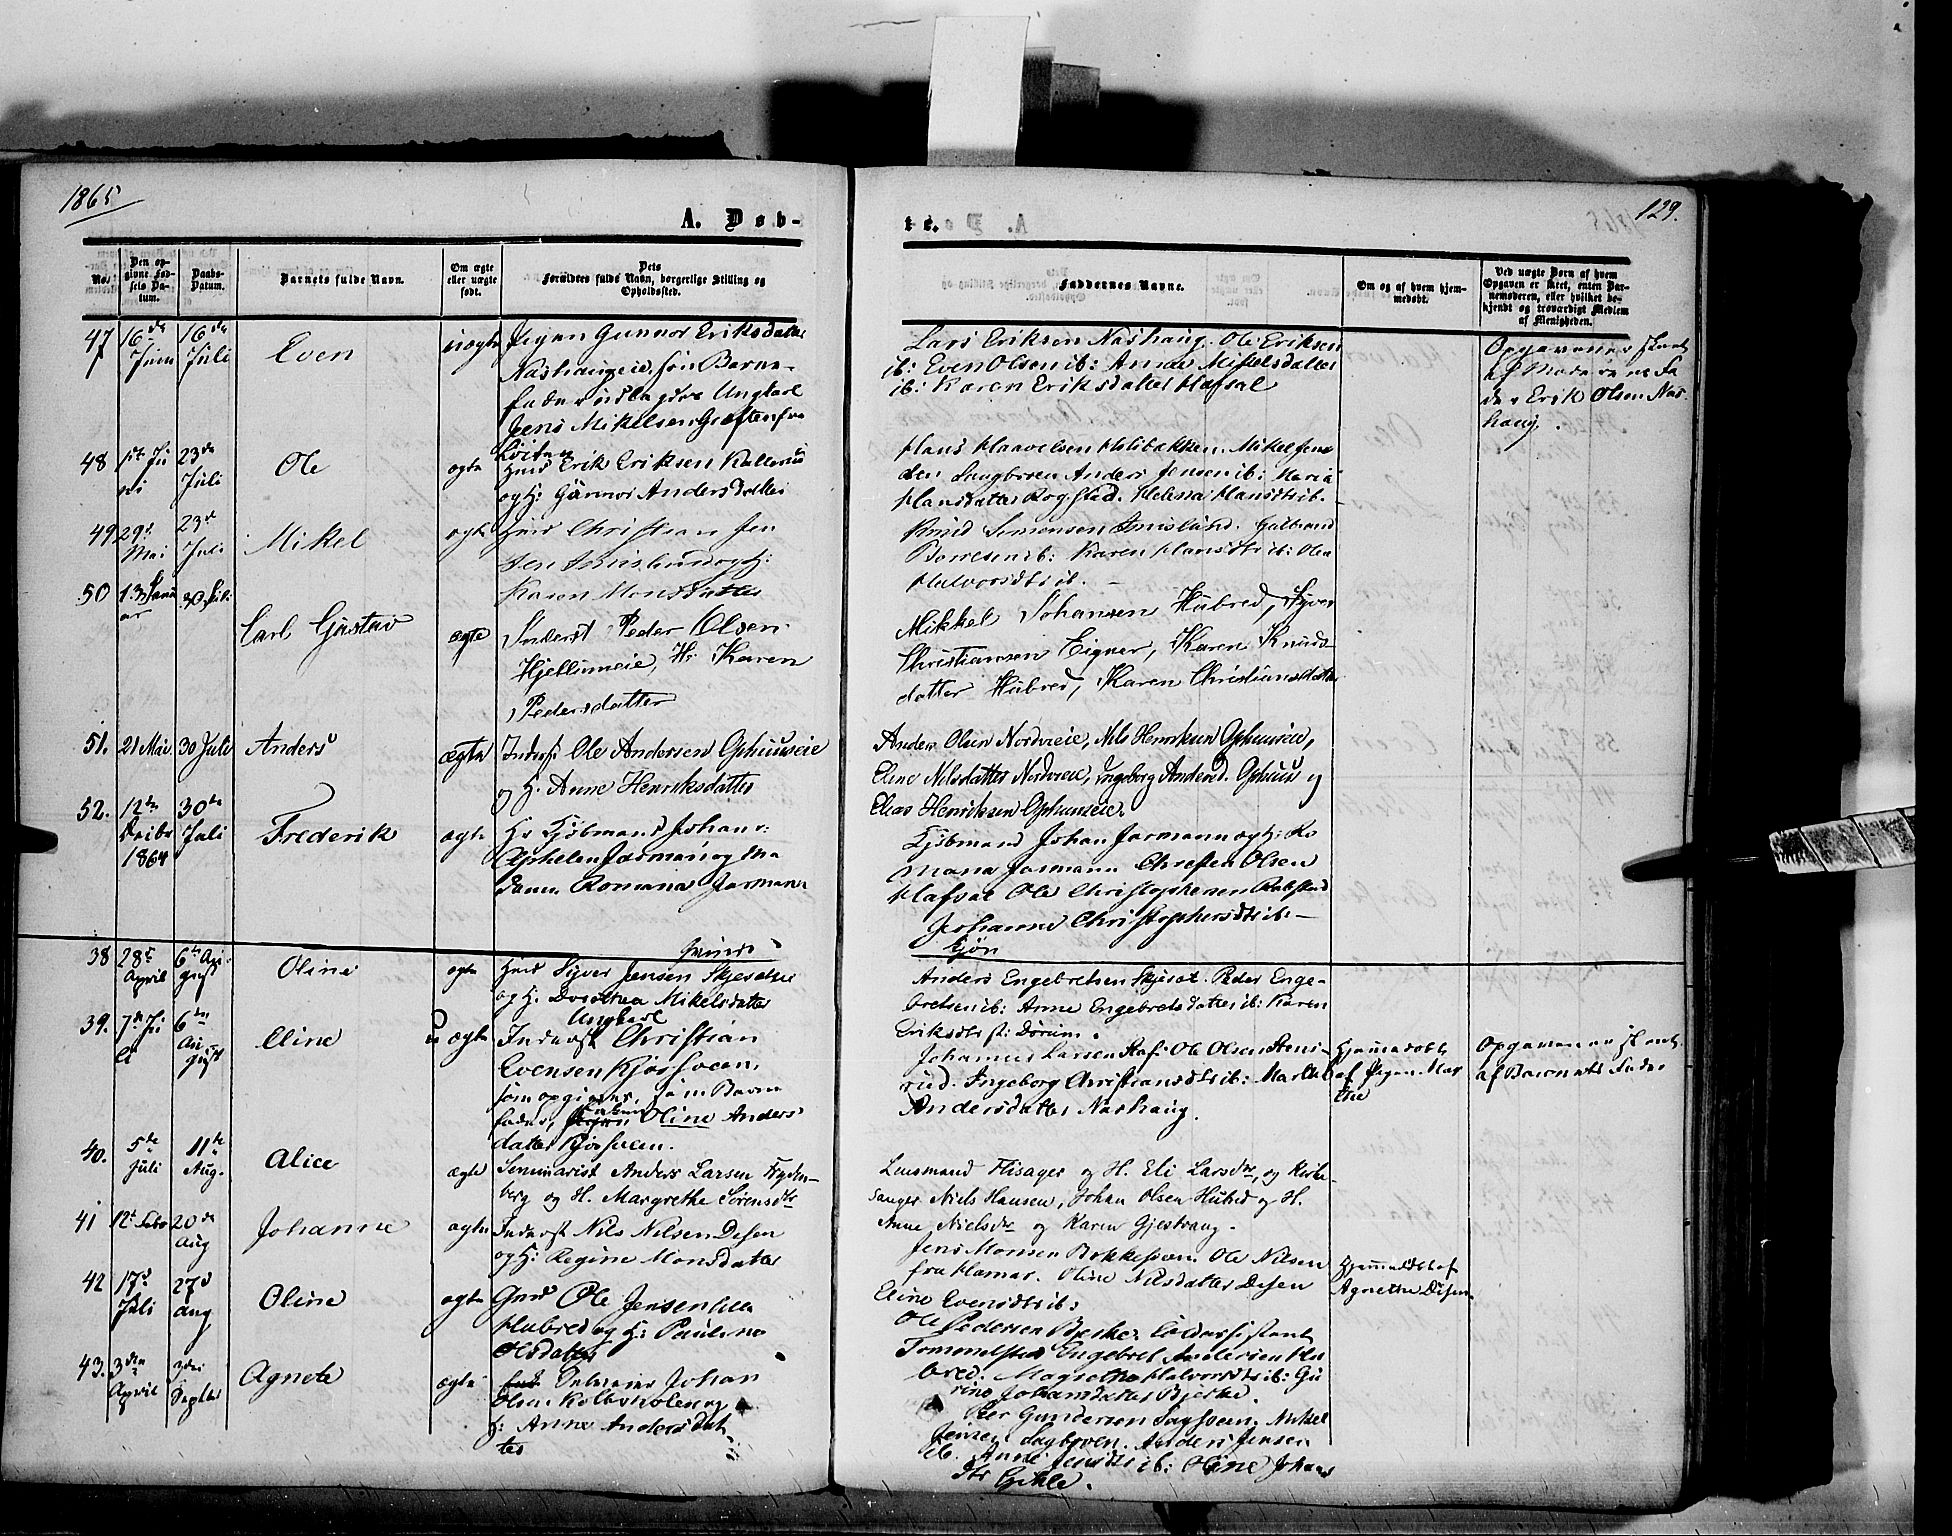 1865
129.
A. Døb-
te.
No.
Den op-
givne Fød-
sels Da-
tum.
Daabs-
Datum.
Barnets fulde Navn.
Om ægte
eller uægte
født.
Dets
Forældres fulde Navn, borgerlige Stilling og
Opholdssted.
Faddernes Navne.
Om og af hvem hjem-
medøbt.
Ved uægte Børn af hvem
Opgaven er skeet, enten Bar-
nemoderen, eller hvilket be-
kjendt og troværdigt Medlem
af Menigheden.
47 16de Juni 16de Juli Even uægte Pigen Gunnor Eriksdatter
Nashaugeie, som Barne-
fader udlagdes Ungkarl
Jens Mikelsen fra
Løiten
Lars Eriksen Nashaug. Ole Eriksen
ib: Even Olsen ib: Anne Mikelsdatter
ib: Karen Eriksdatter Hafsal
Opgaven er skeet
af Moderens Fa
der Erik Olsen Nas
haug.
48 1ste Juni 23de Juli Ole ægte Erik Eriksen
og H: Gunnor Andersdatter
Hans Haavelsen Holibakken. Mikel Jens
Anders Jensen ib: Maria
Hansdatter Rogstad. Helena Hansdtr ib.
49 29d Mai 23de Juli Mikel ægte Christian Jen
sen Imislund og H:
Karen Monsdatter
Knud Simonsen Imislund. Gulbrand
ib: Karen Hansdtr ib: Olea
Halvorsdtr ib. —
50 13 Janu
ar 30 Juli Carl Gustav ægte Inderst Peder Olsen
Hjellumeie, H: Karen
Pedersdatter
Mikkel Johansen Hubred, Syver
Christiansen Eigner, Karen Knuds-
datter Hubred, Karen Christiansdatter
51. 21 Mai 30 Juli Anders ægte Inderst Ole Andersen Ophuuseie
og H. Anne Henriksdatter
Anders Olsen Nordvieie, Nils Henriksen Ophuuseie,
Eline Nilsdatter Nordvieie, Ingeborg Andersd. Ophuus og
Elias Henriksen Ophuuseie.
52. 12te
1864 30te Juli Frederik ægte Hr Kjøbmand Johan
Jarmann og Ma
damm Romana Jarmann
Kjøbmand Johan Jarmann og H: Ro
mana Jarmann Christen Olsen
Hafsal Ole Christophersen
Johanne Christophersdtr ib. —
Kjøn
38 28de April 6te Au-
gust Oline ægte Syver Jensen
og H. Dorothea Mikelsdatter
Anders Engebretsen Skjeset. Peder Enge-
bretsen ib: Anne Engebretsdatter ib: Karen
Eriksdtr
39. 7de Ju
li 6te Au
gust Eline u ægte Ungkarl
Inderst Christian
Evensen Kjøssveen,
som opgives som Barne
fader, Enken Oline Anders
datter Kjøssveen.
Johannes Larsen Ole Olsen Stens-
rud. Ingeborg Christiansdtr ib: Marthe
Andersdatter Nashaug.
Hjemmedøbt
af Pigen Mar
the
Opgaven er skeet
af Barnets Fader
40. 5te Juli 11te Aug. Alice ægte Seminarist Anders Larsen Fryden-
berg og H. Margrethe Sørensdtr
Lensmand Flisager og H. Eli Larsdtr, og Kirke-
sanger Niels Hansen, Johan Olsen Hubred og H.
Anne Nielsdtr og Karen Gjestvang.
41 12t Febr 20de Aug Johanne ægte Inderst Nils Nilsen Disen
og H: Regine Monsdatter
Jens Monsen Bekkesveen. Ole Nilsen
fra Hamar. Oline Nilsdatter Disen
Eline Evensdtr ib:
Hjemmedøbt af
Agnethe Disen
42 17d Juli 27d Aug Oline ægte Gmd Ole Jensen
Hubred og H: Pauline
Olsdatter
Ole Pedersen Bjerke.
Engebret Andersen Hu
bred. Magnethe Halvorsdtr ib: Gu
rine Johansdatter Bjerke.
43. 3die April 3die Septbr Agnete ægte Selveier Johan
Olsen og
H: Anne Andersdat
ter
Per Gundersen Sagsveen. Mikel
Jensen Anders Jensen
ib. Anne Jensdtr ib: Oline Johans
dtr Gihle.